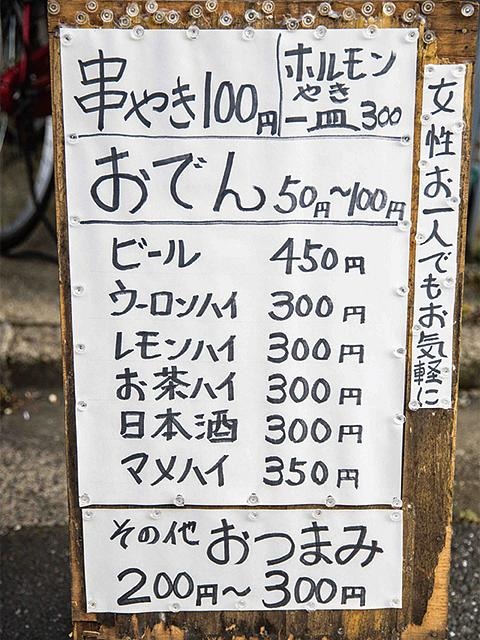 串やき100円
ホルモン
やき
一皿 300
おでん 50円〜100円
ビール 450円
ウーロンハイ 300円
レモンハイ 300円
お茶ハイ 300円
日本酒 300円
マメハイ 350円
その他 おつまみ
200円〜300円
女性お一人でもお気軽に